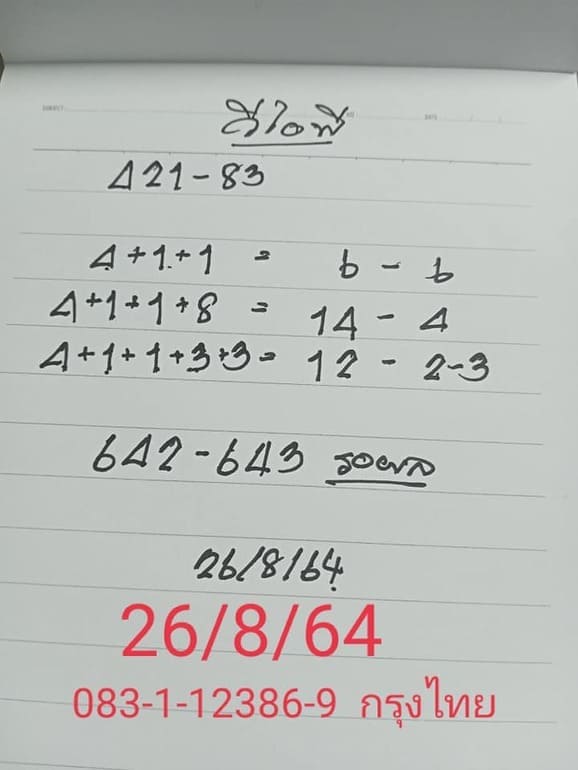 SUBJECT
NO
DATE
วีไอพี
421-83
4+1+1 = 6 - 6
4+1+1+8 = 14 - 4
4+1+1+3+3= 12 - 2-3
642-643 รอผล
26/8/64
26/8/64
083-1-12386-9 กรุงไทย